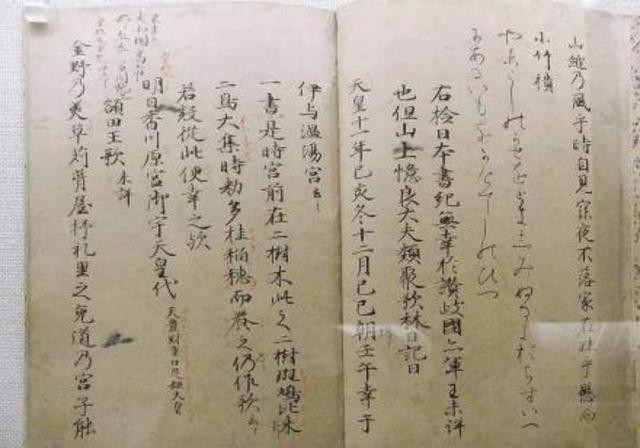 山越乃風乎時自見寐夜不落家在妹乎懸而
小竹樻
やまこしのかせをときしみぬるよおちすいへ
なるいもをかけてしのひつ
右捡日本書紀無幸於讃岐國亦軍王未詳
也但山上憶良大夫類聚歌林日記曰
天皇十一年己亥冬十二月己巳朔壬午幸于
伊与温湯宮云〻
一書是時宮前在二樹木此之二樹斑鳩比米
二鳥大集時勅多挂稲穂而養之仍作歌云〻
若疑従此便幸之歟
明日香川原宮御宇天皇代 天豊財重日足姫天皇
額田王歌 未詳
金野乃美草苅葺屋杼礼里之兎道乃宮子能